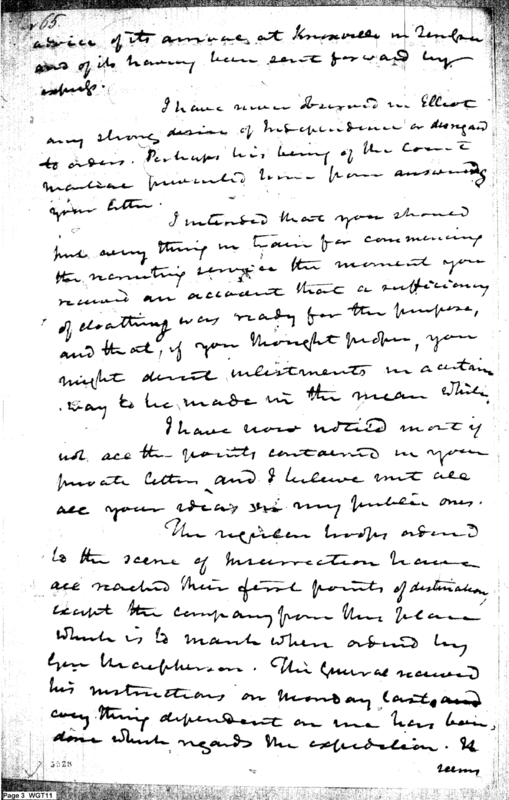 65.
advice of its arrival at Knoxville in Tennessee
and of its having been sent forward by
express.
I have never observed in Elliot
any strong desire of Independence or disregard
to orders. Perhaps his being of the Court
Martial prevented him from answering
your letter.
I intended that you should
put every thing in train for commencing
the recruiting service the moment you
received an account that a sufficiency
of cloathing was ready for the purpose,
and that, if you thought proper, you
might direct inlistments in a certain
way to be made in the mean while.
I have now noticed most if
not all the points contained in your
private letters and I believe met all
all your ideas in my public ones.
The regular troops ordered
to the scene of Insurrection have
all reached their first points of destination,
except the company from this place
which is to march when ordered by
Gen Macpherson. This General received
his instructions on Monday last, and
every thing dependent on me has been
done which regards the expedition. It
seems
3928
Page 3 WGT11